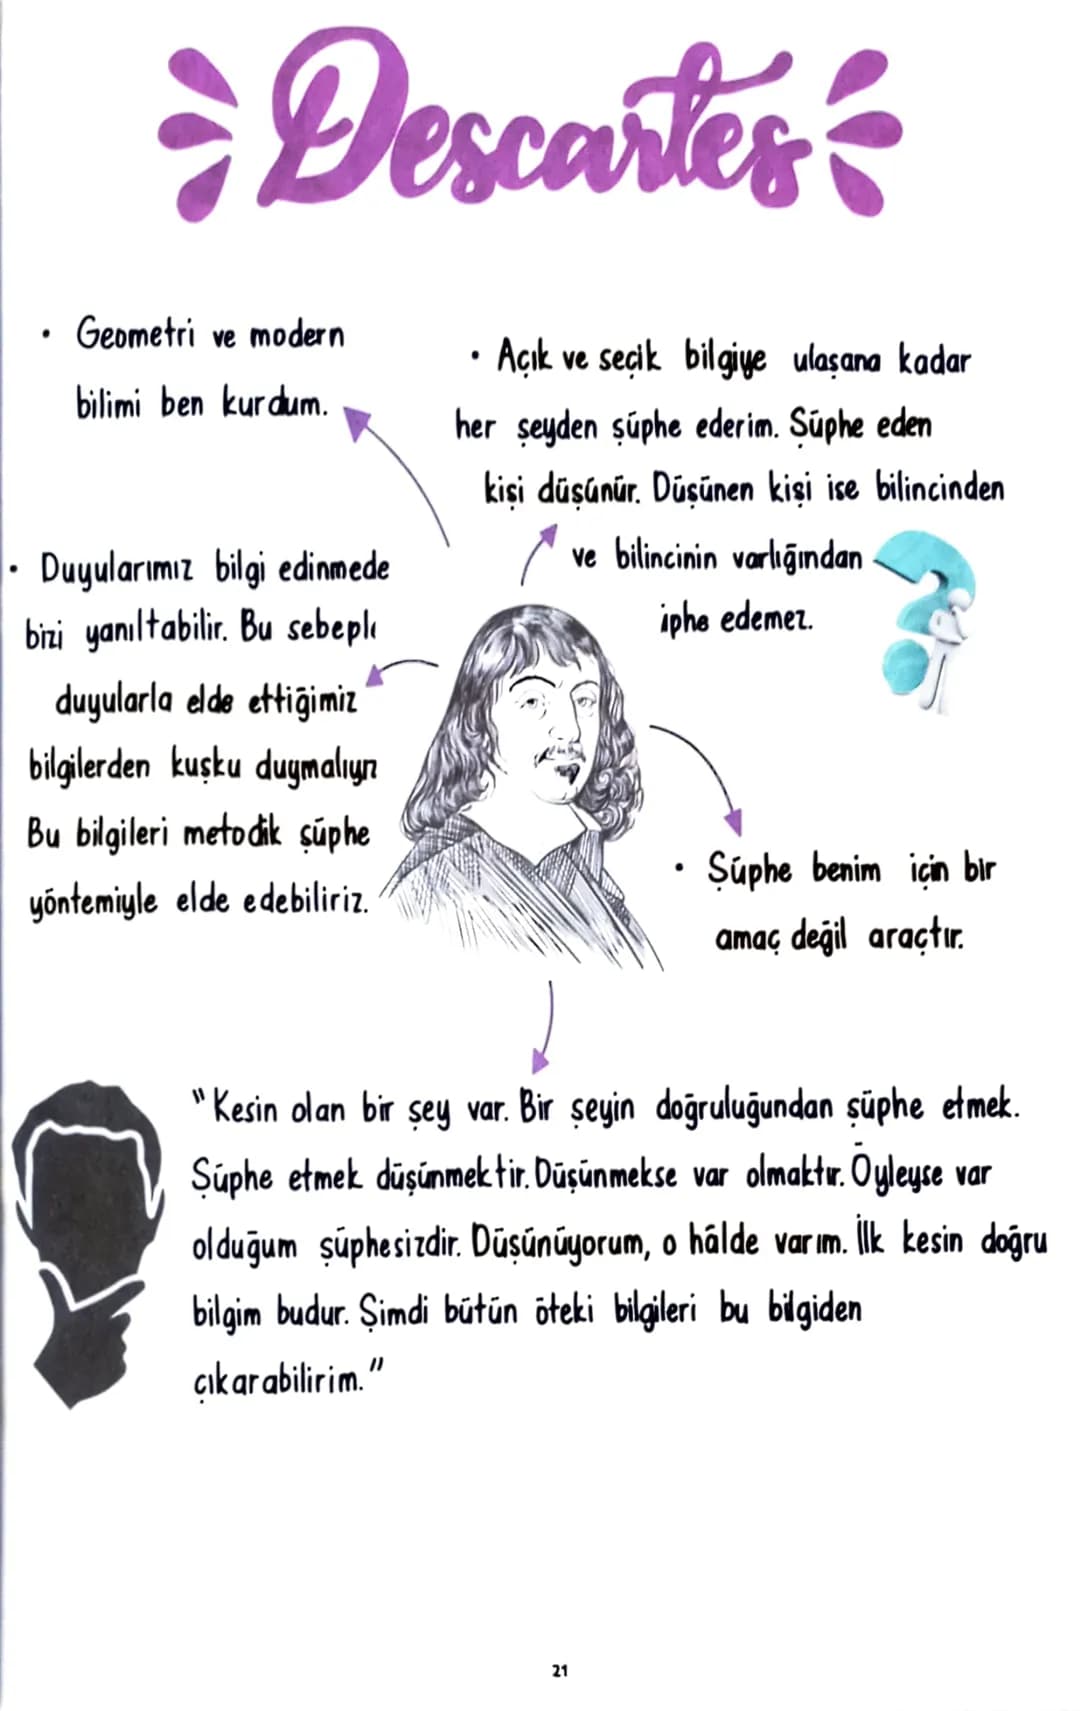 Descartes
• Geometri ve modern
bilimi ben kurdum.
• Açık ve seçik bilgiye ulaşana kadar
her şeyden şüphe ederim. Şüphe eden
kişi düşünür. Düşünen kişi ise bilincinden
ve bilincinin varlığından
iphe edemez.
• Duyularımız bilgi edinmede
bizi yanıltabilir. Bu sebepl
duyularla elde ettiğimiz
bilgilerden kuşku duymalıyı
Bu bilgileri metodik şüphe
yöntemiyle elde edebiliriz.
• Şüphe benim için bir
amaç değil araçtır.
"Kesin olan bir şey var. Bir şeyin doğruluğundan şüphe etmek.
Şüphe etmek düşünmektir. Düşünmekse var olmaktır. Öyleyse var
olduğum şüphesizdir. Düşünüyorum, o hâlde varım. İlk kesin doğru
bilgim budur. Şimdi bütün öteki bilgileri bu bilgiden
çıkarabilirim."
21